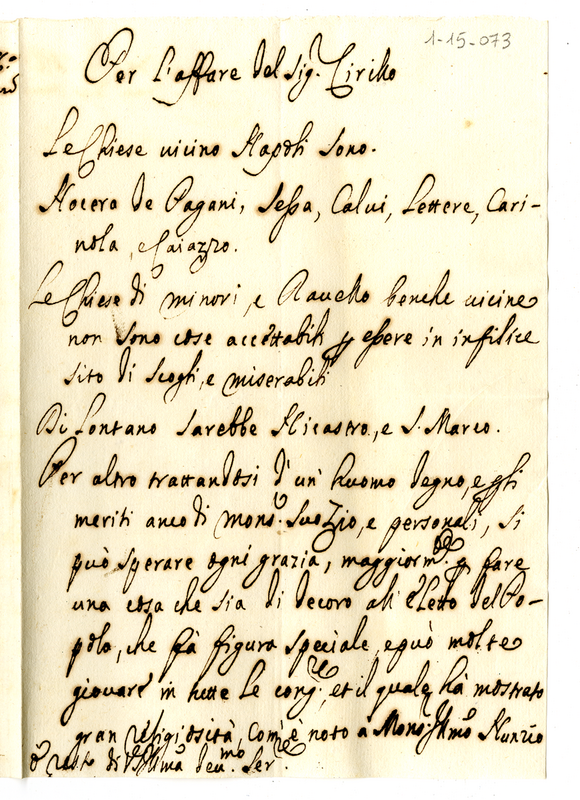 1-15-073
Per L'affare del Sig. Cirillo
Le Chiese vicino Napoli sono.
Nocera de Pagani, Sessa, Calui, Lettere, Cari-
nola, e Caiazzo.
Le Chiese di minori, e Rauello benche uicine
non sono cose accettabili p essere in infilice
sito di scogli, e miserabili
Di Lontano sarebbe Nicastro, e S. Marco.
Per altro trattandosi d'un huomo degno, e gli
meriti anco di mons.r suo Zio, e personali, si
può sperare ogni grazia, maggiorm.te p fare
una cosa che sia di decoro all' eletto del Po-
polo, che fà figura speciale, e può molte
giouare in tutte le cong.re, et il quale hà mostrato
gran religiosità, com'è noto a Mons. Illmo Nunzio
resto di V.S. Illma deu.mo ser.re